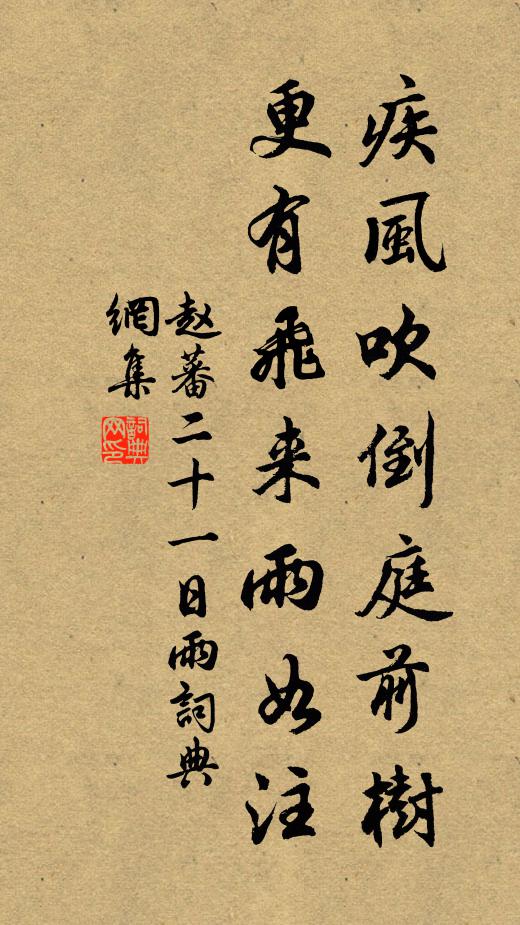 疾風吹倒庭前樹
更有飛来雨如注
赵蕃二十一日雨詞典
網集
詞典网印